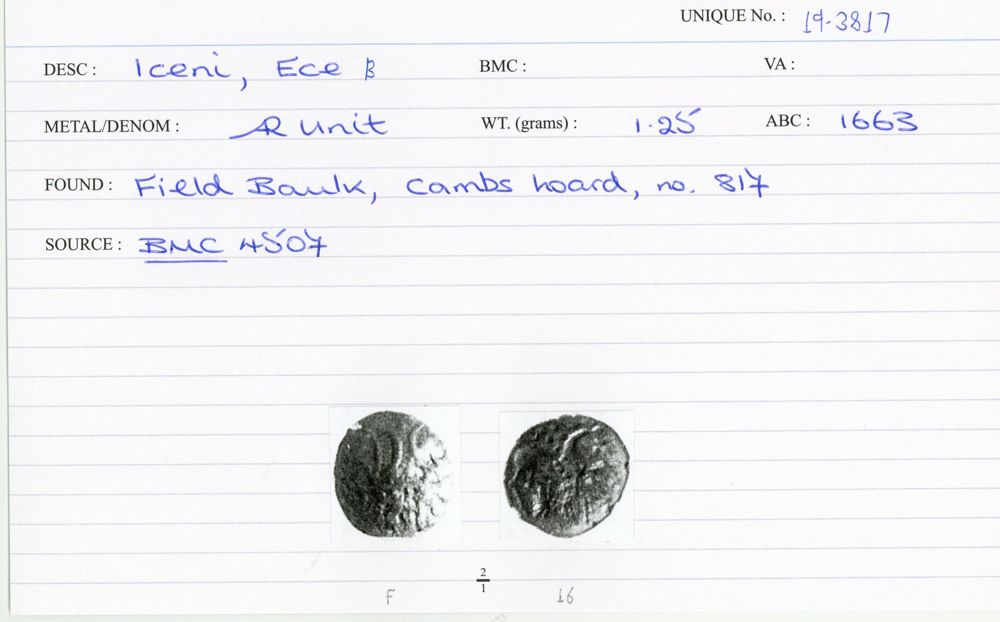 UNIQUE No. : 19-3817
DESC : Iceni, Ece B BMC : VA :
METAL/DENOM : AR Unit WT. (grams) : 1.25 ABC : 1663
FOUND : Field Baulk, Cambs hoard, no. 817
SOURCE : BMC 4507
2
1
F 16